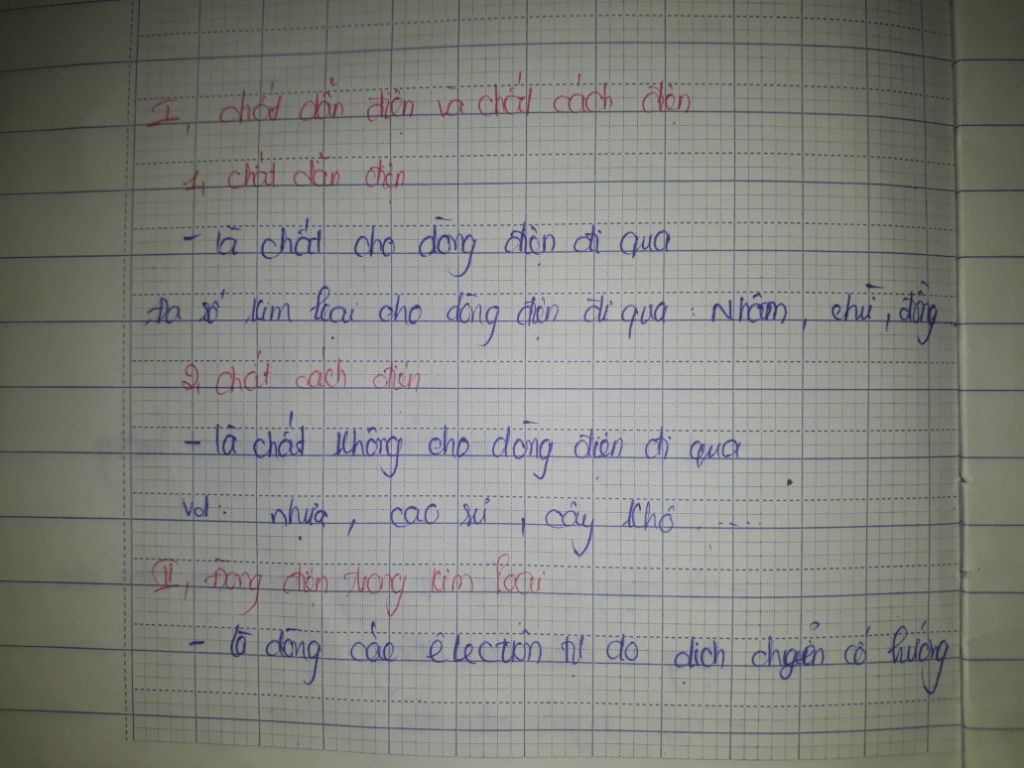 I, chất dẫn điện và chất cách điện
1, chất dẫn điện
- là chất cho dòng điện đi qua
Đa số kim loại cho dòng điện đi qua : Nhôm, chì, đồng
2, chất cách điện
- là chất không cho dòng điện đi qua
vd : nhựa, cao sứ, cây khô .....
II, Dòng điện trong kim loại
- là dòng các êlectrôn tự do dịch chyển có hướng